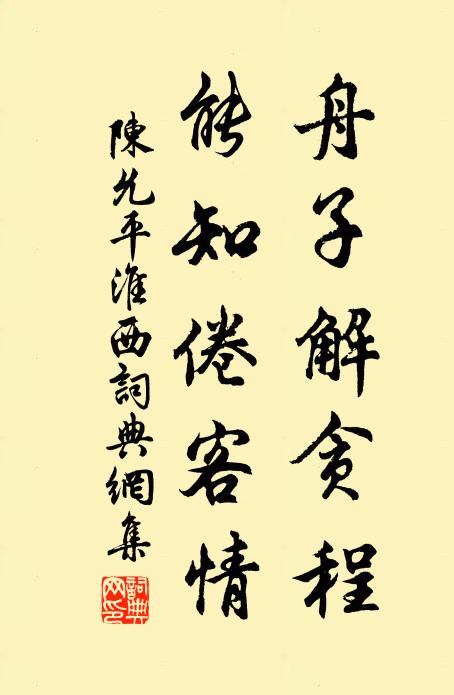 舟子解贪程
能知倦客情
陳允平淮西詞典網集
詞典網印